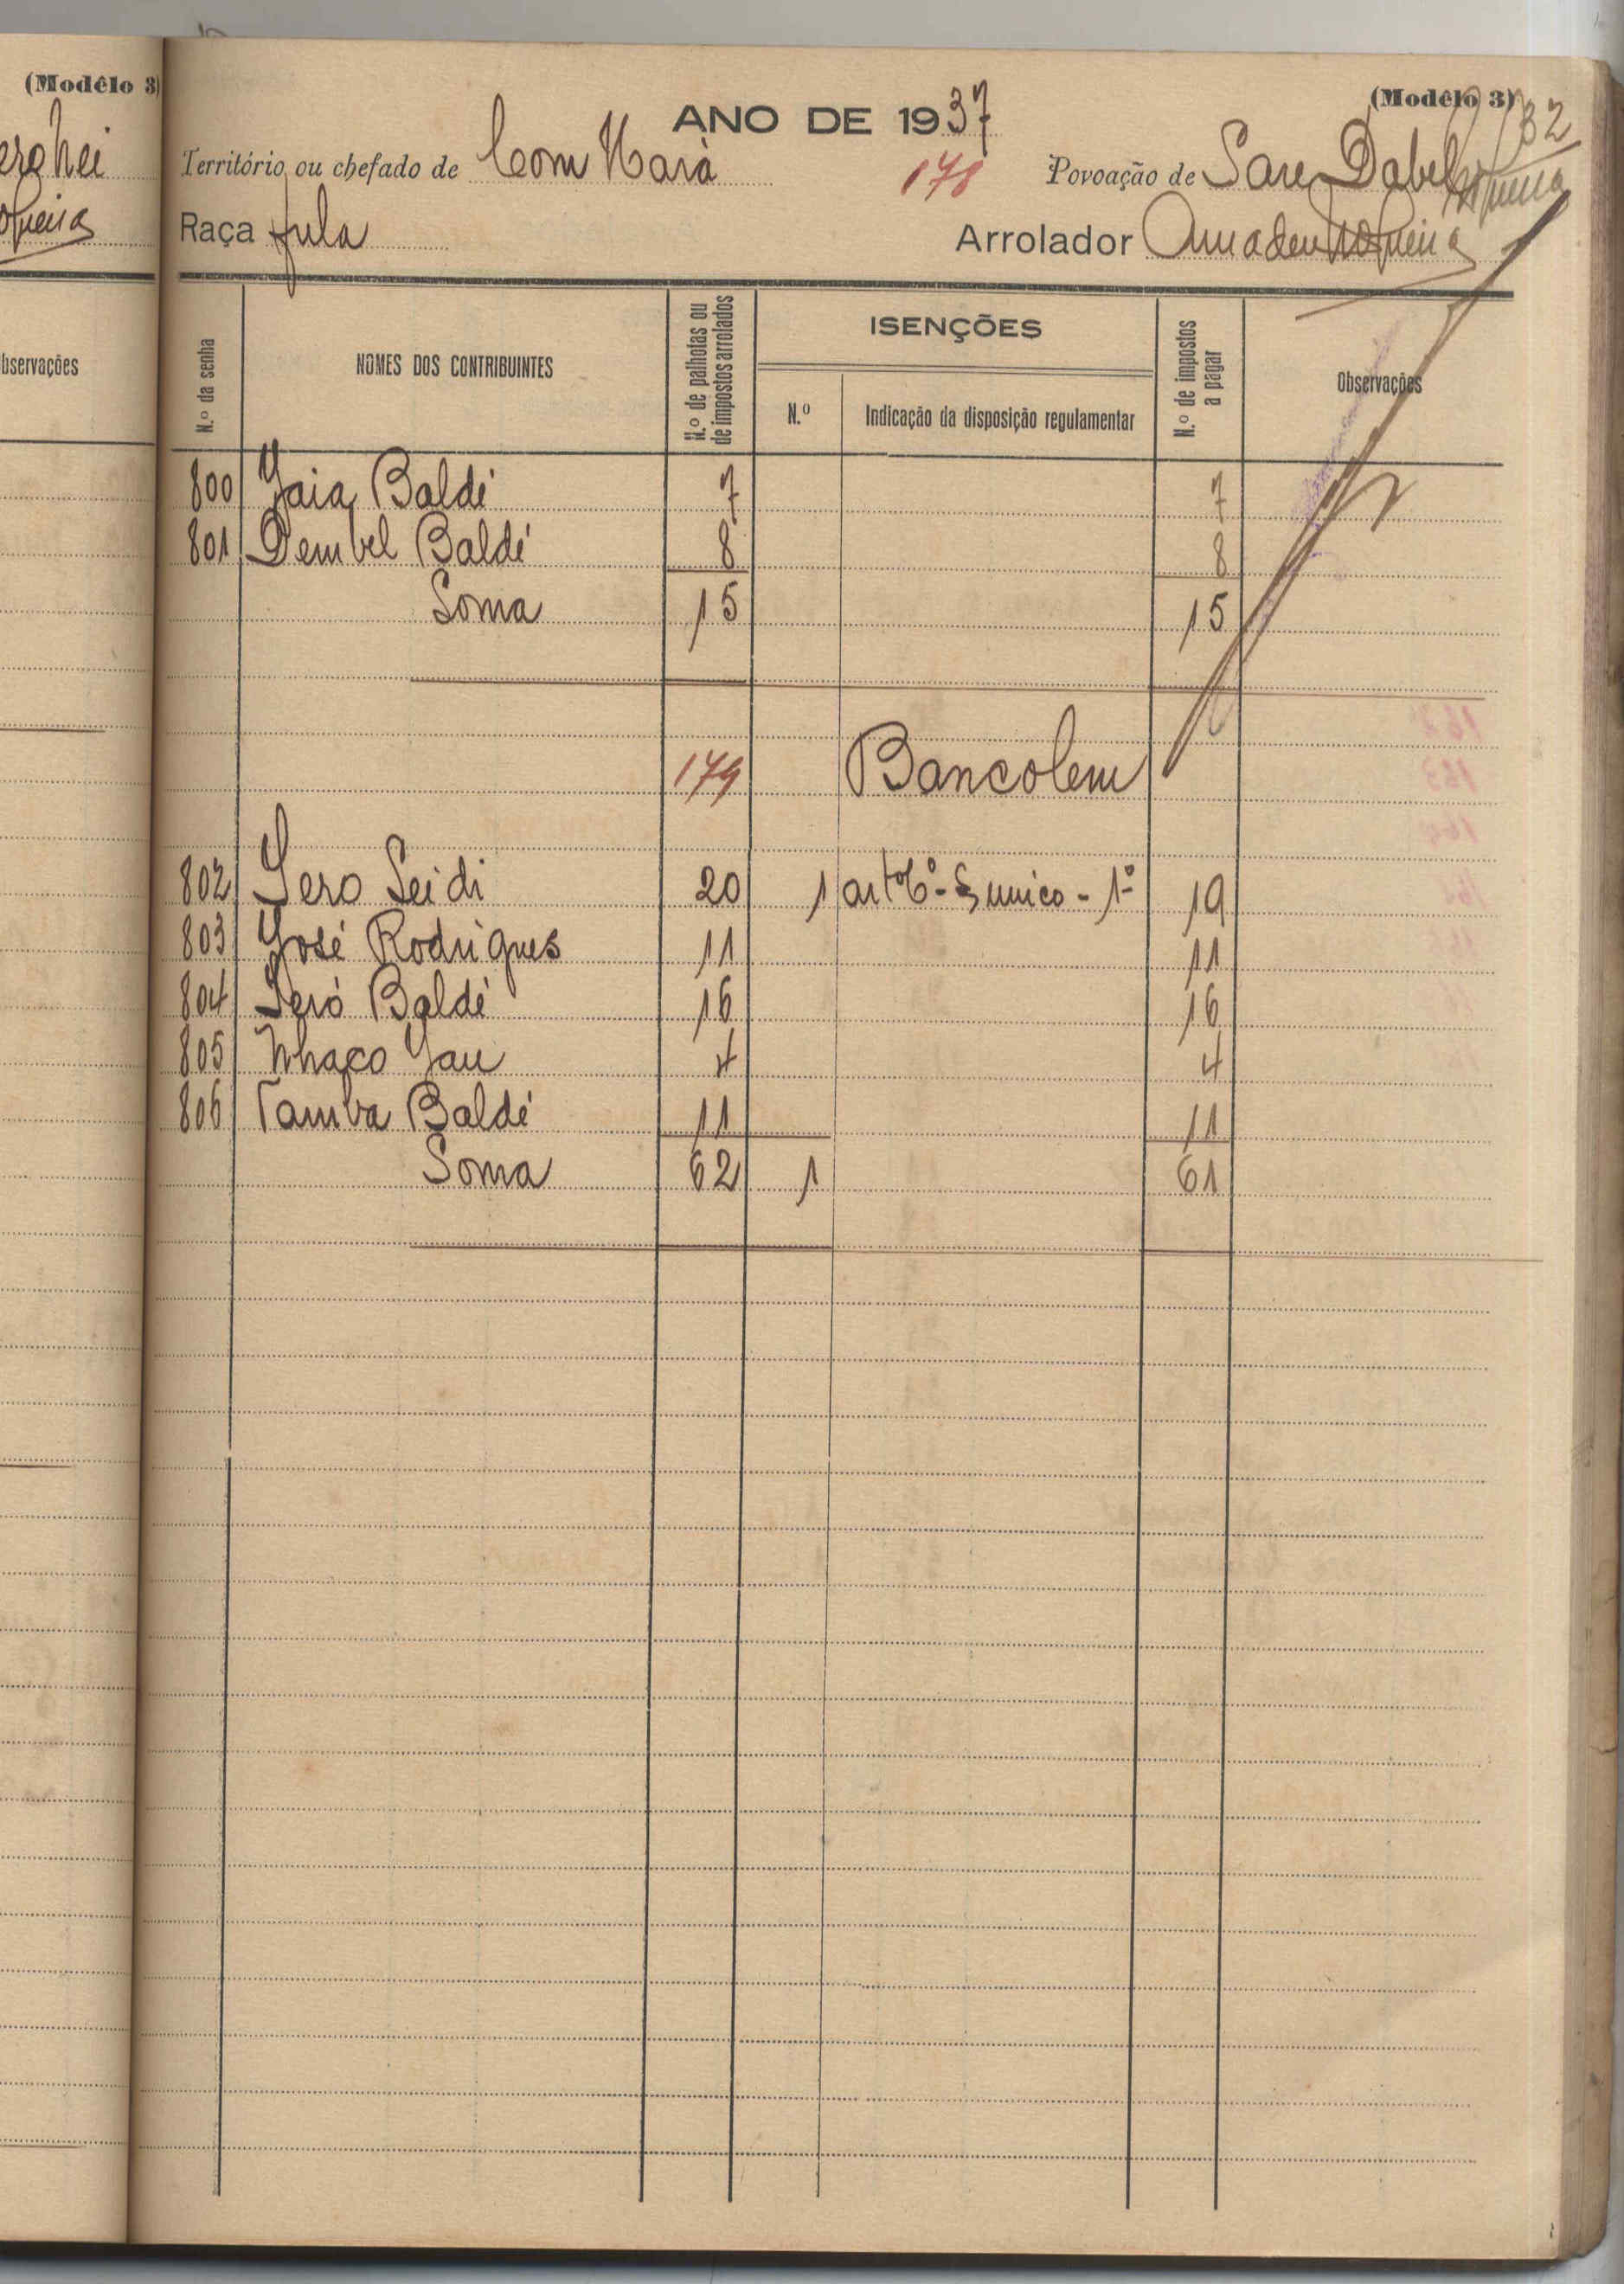 (Modêlo 3)
(Modêlo 3)
132
ANO DE 1937
Território ou chefado de Com Hara
178
Povoação de Sare Dabel
Raça fula
Arrolador Amadeu Nogueira
Observações
N.º da senha
NOMES DOS CONTRIBUINTES
N.º de palhotas ou de impostos arrolados
ISENÇÕES
N.º
Indicação da disposição regulamentar
N.º de impostos a pagar
Observações
800 Yaia Baldé 7 7
801 Dembel Baldé 8 8
Soma 15 15
179 Bancolem
802 Sero Seidi 20 1 artº 6º - § unico - 1º 19
803 José Rodrigues 11 11
804 Seró Baldé 16 16
805 Nhaco Jau 4 4
806 Tamba Baldé 11 11
Soma 62 1 61